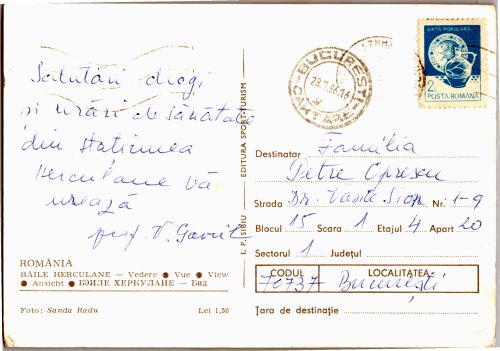 Salutări dragi
și urări de sănătate
din stațiunea
Herculane Vă
urează
prof V. Gavril
ROMÂNIA
BĂILE HERCULANE — Vedere ● Vue ● View
● Ansicht ● БЭИЛЕ ХЕРКУЛАНЕ — Бид
Foto: Sanda Radu Lei 1,50
I. P. SIBIU EDITURA SPORT-TURISM
BUCUREȘTI
CARTARE
ARTA POPULARĂ
2L
POSTA ROMANA
Familia
Destinatar Petre Oprescu
Strada Dr. Vasile Sion Nr. 1-9
Blocul 15 Scara 1 Etajul 4 Apart 20
Sectorul 1 Județul
CODUL LOCALITATEA
70737 București
Țara de destinație